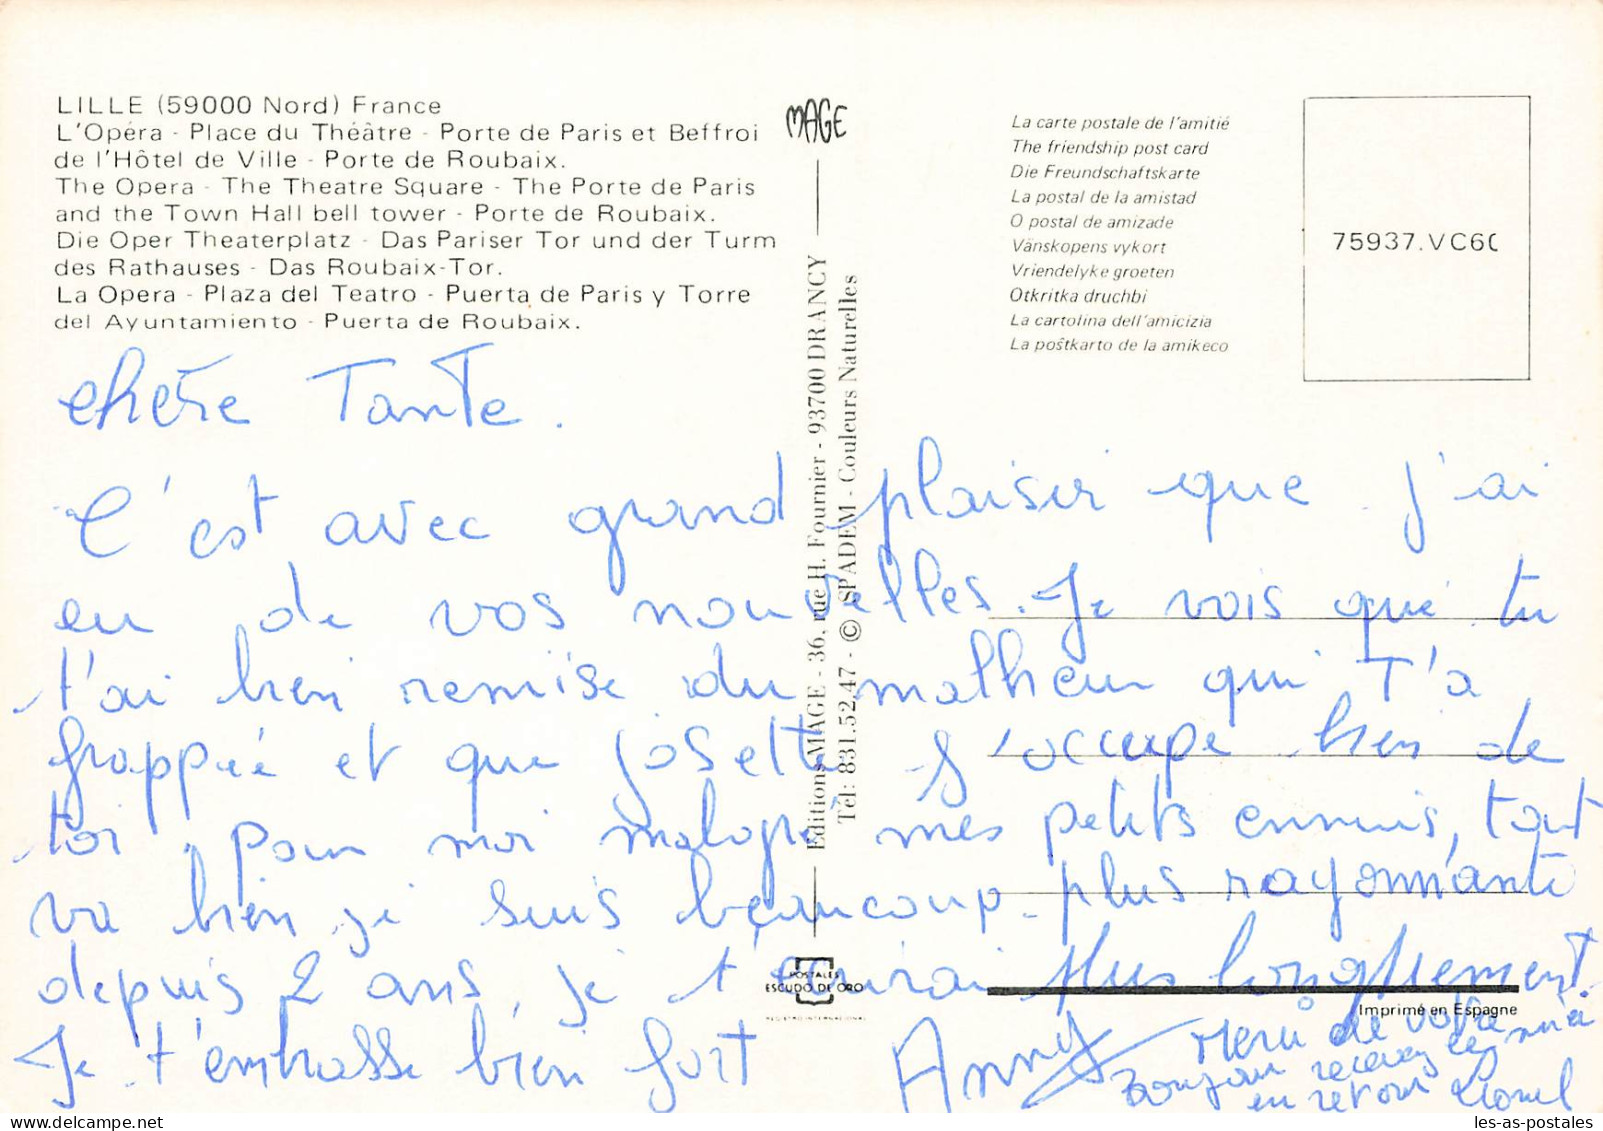 LILLE (59000 Nord) France
L'Opéra - Place du Théâtre - Porte de Paris et Beffroi
de l'Hôtel de Ville - Porte de Roubaix.
The Opera - The Theatre Square - The Porte de Paris
and the Town Hall bell tower - Porte de Roubaix.
Die Oper Theaterplatz - Das Pariser Tor und der Turm
des Rathauses - Das Roubaix-Tor.
La Opera - Plaza del Teatro - Puerta de Paris y Torre
del Ayuntamiento - Puerta de Roubaix.
MAGE
Editions MAGE - 36, rue H. Fournier - 93700 DRANCY
Tél: 831.52.47 - © SPADEM - Couleurs Naturelles
La carte postale de l'amitié
The friendship post card
Die Freundschaftskarte
La postal de la amistad
O postal de amizade
Vänskopens vykort
Vriendelyke groeten
Otkritka druchbi
La cartolina dell'amicizia
La poŝtkarto de la amikeco
75937.VC60
chère Tante.
C'est avec grand plaisir que j'ai
eu de vos nouvelles. Je vois que tu
t'ai bien remise du malheur qui T'a
frappée et que Josette s'occupe bien de
toi, pour moi malgré mes petits ennuis, tout
va bien je suis beaucoup plus rayonnante
depuis 2 ans, je t'écrirai plus longuement
Je t'embrasse bien fort Anny
Merci de votre
Bonjour recevez les
en retour Lionel
POSTALES
ESCUDO DE ORO
REGISTRO INTERNACIONAL
Imprimé en Espagne
les-as-postales